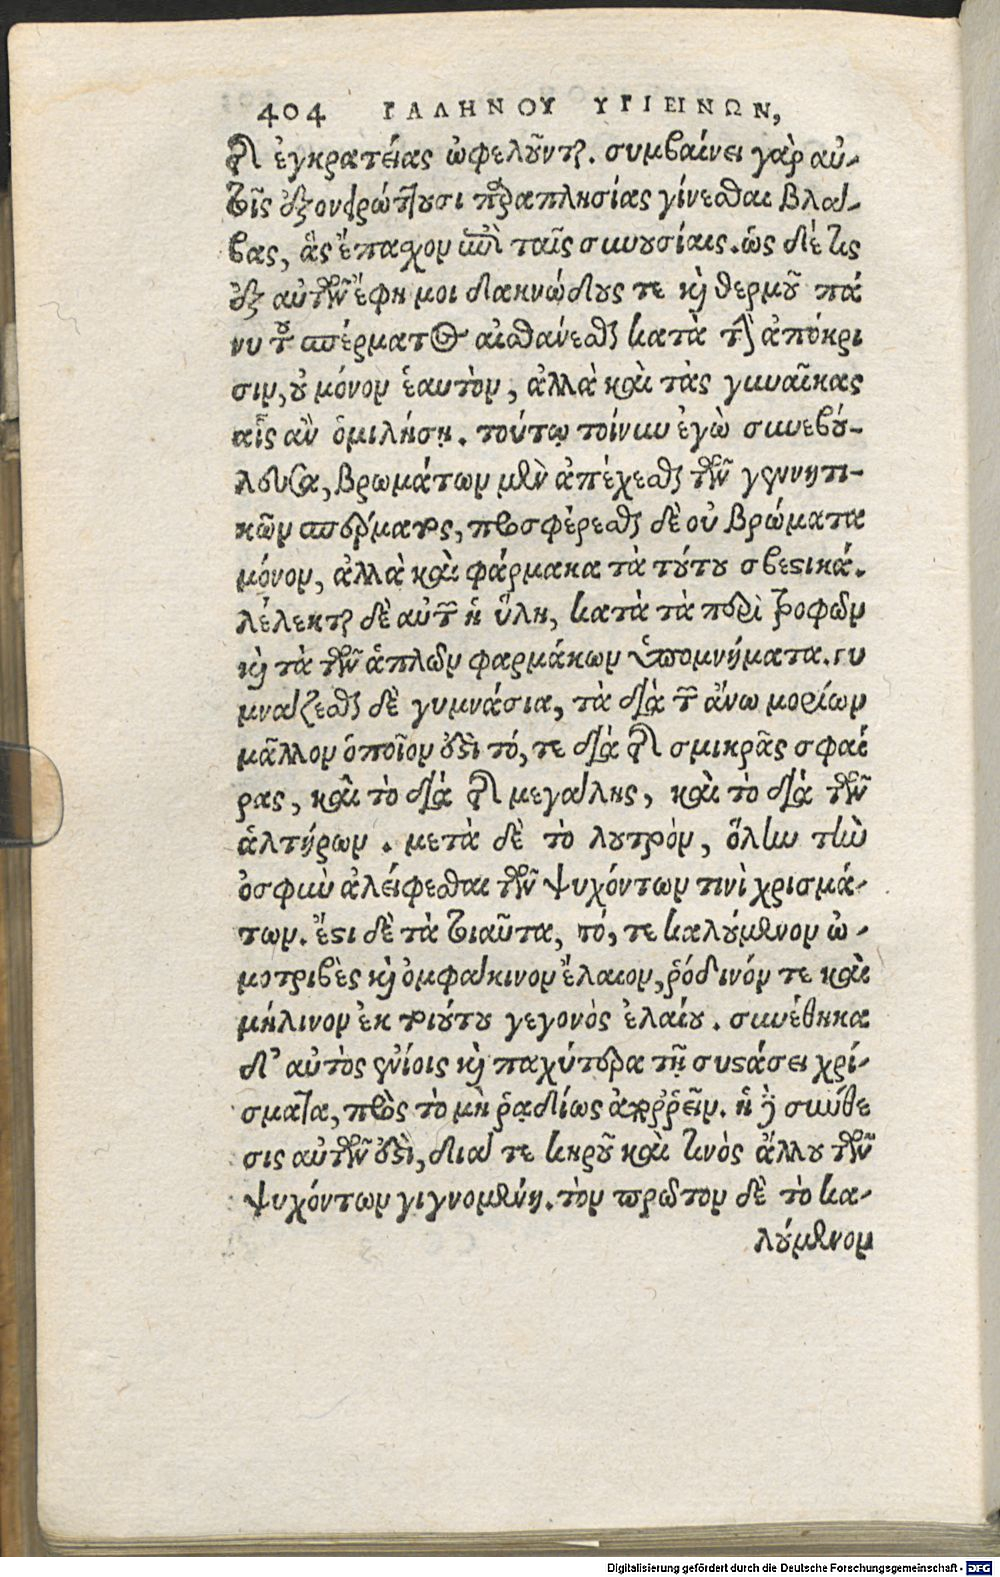 404 ΓΑΛΗΝΟΥ ΥΓΙΕΙΝΩΝ,
τῆς ἐγκρατείας ὠφελοῦνται. συμβαίνει γὰρ αὐ-
τοῖς ἐξονειρώττουσι παραπλησίας γίνεσθαι βλά-
βας, ἃς ἔπασχον ἐπὶ ταῖς συνουσίαις. ὡς δέ τις
ἐξ αὐτῶν ἔφη μοι δακνώδους τε καὶ θερμοῦ πά
νυ τοῦ σπέρματος αἰσθάνεσθαι κατὰ τὴν ἀπόκρι
σιν, οὐ μόνον ἑαυτὸν, ἀλλὰ καὶ τὰς γυναῖκας
αἷς ἂν ὁμιλήσῃ. τούτῳ τοίνυν ἐγὼ συνεβού-
λευσα, βρωμάτων μὲν ἀπέχεσθαι τῶν γεννητι-
κῶν σπέρματος, προσφέρεσθαι δὲ οὐ βρώματα
μόνον, ἀλλὰ καὶ φάρμακα τὰ τούτου σβεστικά.
λέλεκται δὲ αὐτῶν ἡ ὕλη, κατὰ τὰ περὶ τροφῶν
καὶ τὰ τῶν ἁπλῶν φαρμάκων ὑπομνήματα. γυ
μνάζεσθαι δὲ γυμνάσια, τὰ διὰ τῶν ἄνω μορίων
μᾶλλον ὁποῖον ἐστὶ τό, τε διὰ τῆς σμικρᾶς σφαί
ρας, καὶ τὸ διὰ τῆς μεγάλης, καὶ τὸ διὰ τῶν
ἁλτήρων. μετὰ δὲ τὸ λουτρὸν, ὅλην τὴν
ὀσφὺν ἀλείφεσθαι τῶν ψυχόντων τινὶ χρισμά-
των. ἔστι δὲ τὰ τοιαῦτα, τό, τε καλούμενον ὠ-
μοτριβὲς καὶ ὀμφάκινον ἔλαιον, ῥόδινόν τε καὶ
μήλινον ἐκ τοιούτου γεγονὸς ἐλαίου. συνέθηκα
δ' αὐτὸς ἐνίοις καὶ παχύτερα τῇ συστάσει χρί-
σματα, πρὸς τὸ μὴ ῥᾳδίως ἀπορρεῖν. ἡ δὲ σύνθε
σις αὐτῶν ἐστὶ, διά τε κηροῦ καὶ τινὸς ἄλλου τῶν
ψυχόντων γιγνομένη. τὸν πρῶτον δὲ τὸ κα-
λούμενον
Digitalisierung gefördert durch die Deutsche Forschungsgemeinschaft - DFG